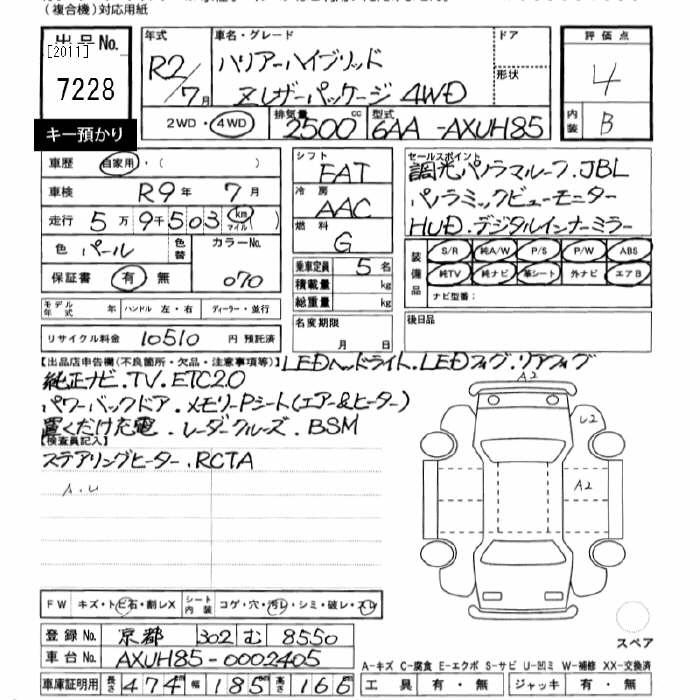 (複合機)対応用紙
出品No.
[2011]
7228
キー預かり
年式 R2/7月
車名・グレード ハリアーハイブリッド
Zレザーパッケージ 4WD
ドア
形状
2WD・4WD
排気量 2500cc
型式 6AA-AXUH85
評価点
4
内装 B
車歴 自家用・( )
車検 R9年 7月
走行 5万9千503 km マイル ( )
色 パール 色替 カラーNo. 070
保証書 有 無
モデル年式 年 ハンドル 左・右 ディーラー・並行
リサイクル料金 10510 円 預託済
シフト FAT
冷房 AAC
燃料 G
乗車定員 5名
積載量 kg
総重量 kg
名変期限
月 日
セールスポイント
調光パノラマルーフ.JBL
パノラミックビューモニター
HUD.デジタルインナーミラー
装備品
S/R 純A/W P/S P/W ABS
純TV 純ナビ 革シート 外ナビ エアB
ナビ型番:
後日品
【出品店申告欄(不良箇所・欠品・注意事項等)】LEDヘッドライト.LEDフォグ.リアフォグ
純正ナビ.TV.ETC2.0
パワーバックドア.メモリーPシート(エアー&ヒーター)
置くだけ充電.レーダークルーズ.BSM
【検査員記入】
ステアリングヒーター.RCTA
A.U
A2
U2
A2
FW キズ・トビ石・割レX シート内装 コゲ・穴・汚レ・シミ・破レ・スレ
登録No. 京都 302 む 8550
車台No. AXUH85-0002405
車庫証明用 長さ 474 幅 185 高さ 166
スペア
A-キズ C-腐食 E-エクボ S-サビ U-凹ミ W-補修 XX-交換済
工具 有・無 ジャッキ 有・無